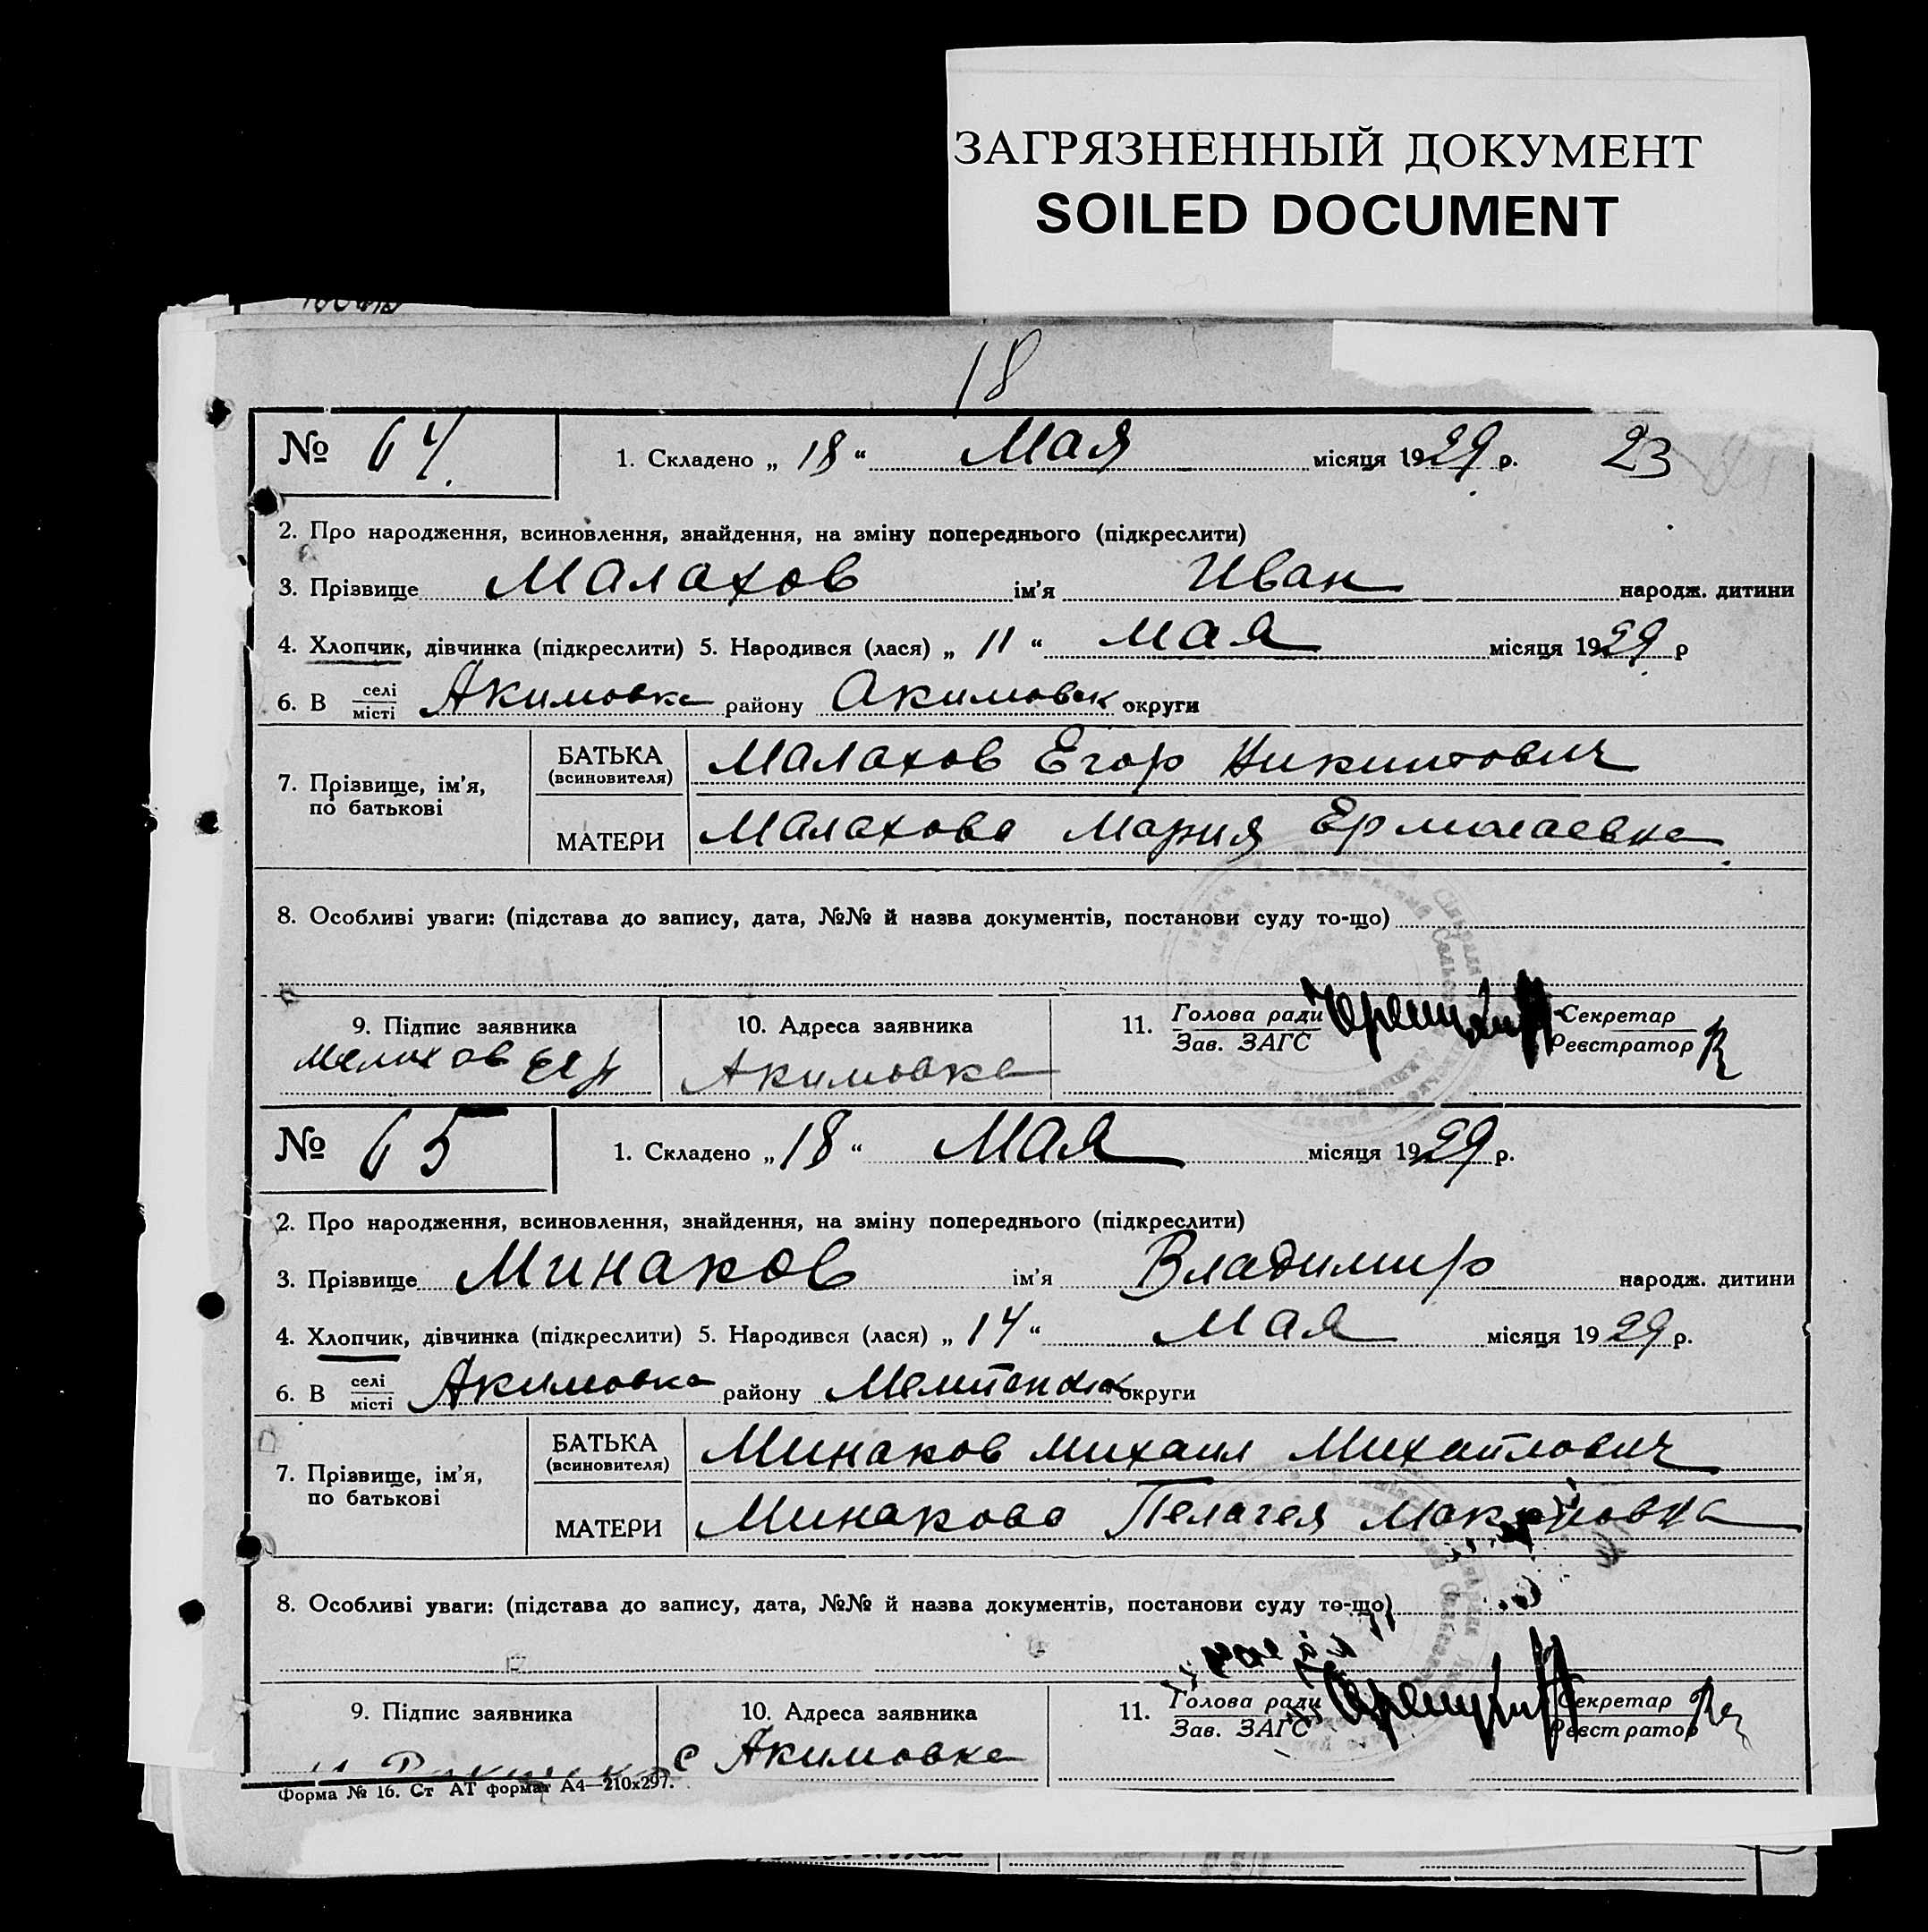 ЗАГРЯЗНЕННЫЙ ДОКУМЕНТ
SOILED DOCUMENT
18
№ 64. 1. Складено „ 18 “ Мая місяця 1929 р. 23
2. Про народження, всиновлення, знайдення, на зміну попереднього (підкреслити)
3. Прізвище Малахов ім'я Иван народж. дитини
4. Хлопчик, дівчинка (підкреслити) 5. Народився (лася) „ 11 “ Мая місяця 1929 р
6. В селі місті Акимовка району Акимовск округи
7. Прізвище, ім'я, по батькові
БАТЬКА (всиновителя) Малахов Егор Никитович
МАТЕРИ Малахова Мария Ермолаевна
8. Особливі уваги: (підстава до запису, дата, №№ й назва документів, постанови суду то-що)
9. Підпис заявника 10. Адреса заявника 11. Голова ради Секретар
Зав. ЗАГС Реєстратор
Малахов Егр Акимовка
№ 65 1. Складено „ 18 “ Мая місяця 1929 р.
2. Про народження, всиновлення, знайдення, на зміну попереднього (підкреслити)
3. Прізвище Минаков ім'я Владимир народж. дитини
4. Хлопчик, дівчинка (підкреслити) 5. Народився (лася) „ 14 “ Мая місяця 1929 р.
6. В селі місті Акимовка району округи
7. Прізвище, ім'я, по батькові
БАТЬКА (всиновителя) Минаков Михаил Михайлович
МАТЕРИ Минакова Пелагея
8. Особливі уваги: (підстава до запису, дата, №№ й назва документів, постанови суду то-що)
9. Підпис заявника 10. Адреса заявника 11. Голова ради Секретар
Зав. ЗАГС Реєстратор
с Акимовка
Форма № 16. Ст АТ формат А4—210х297.